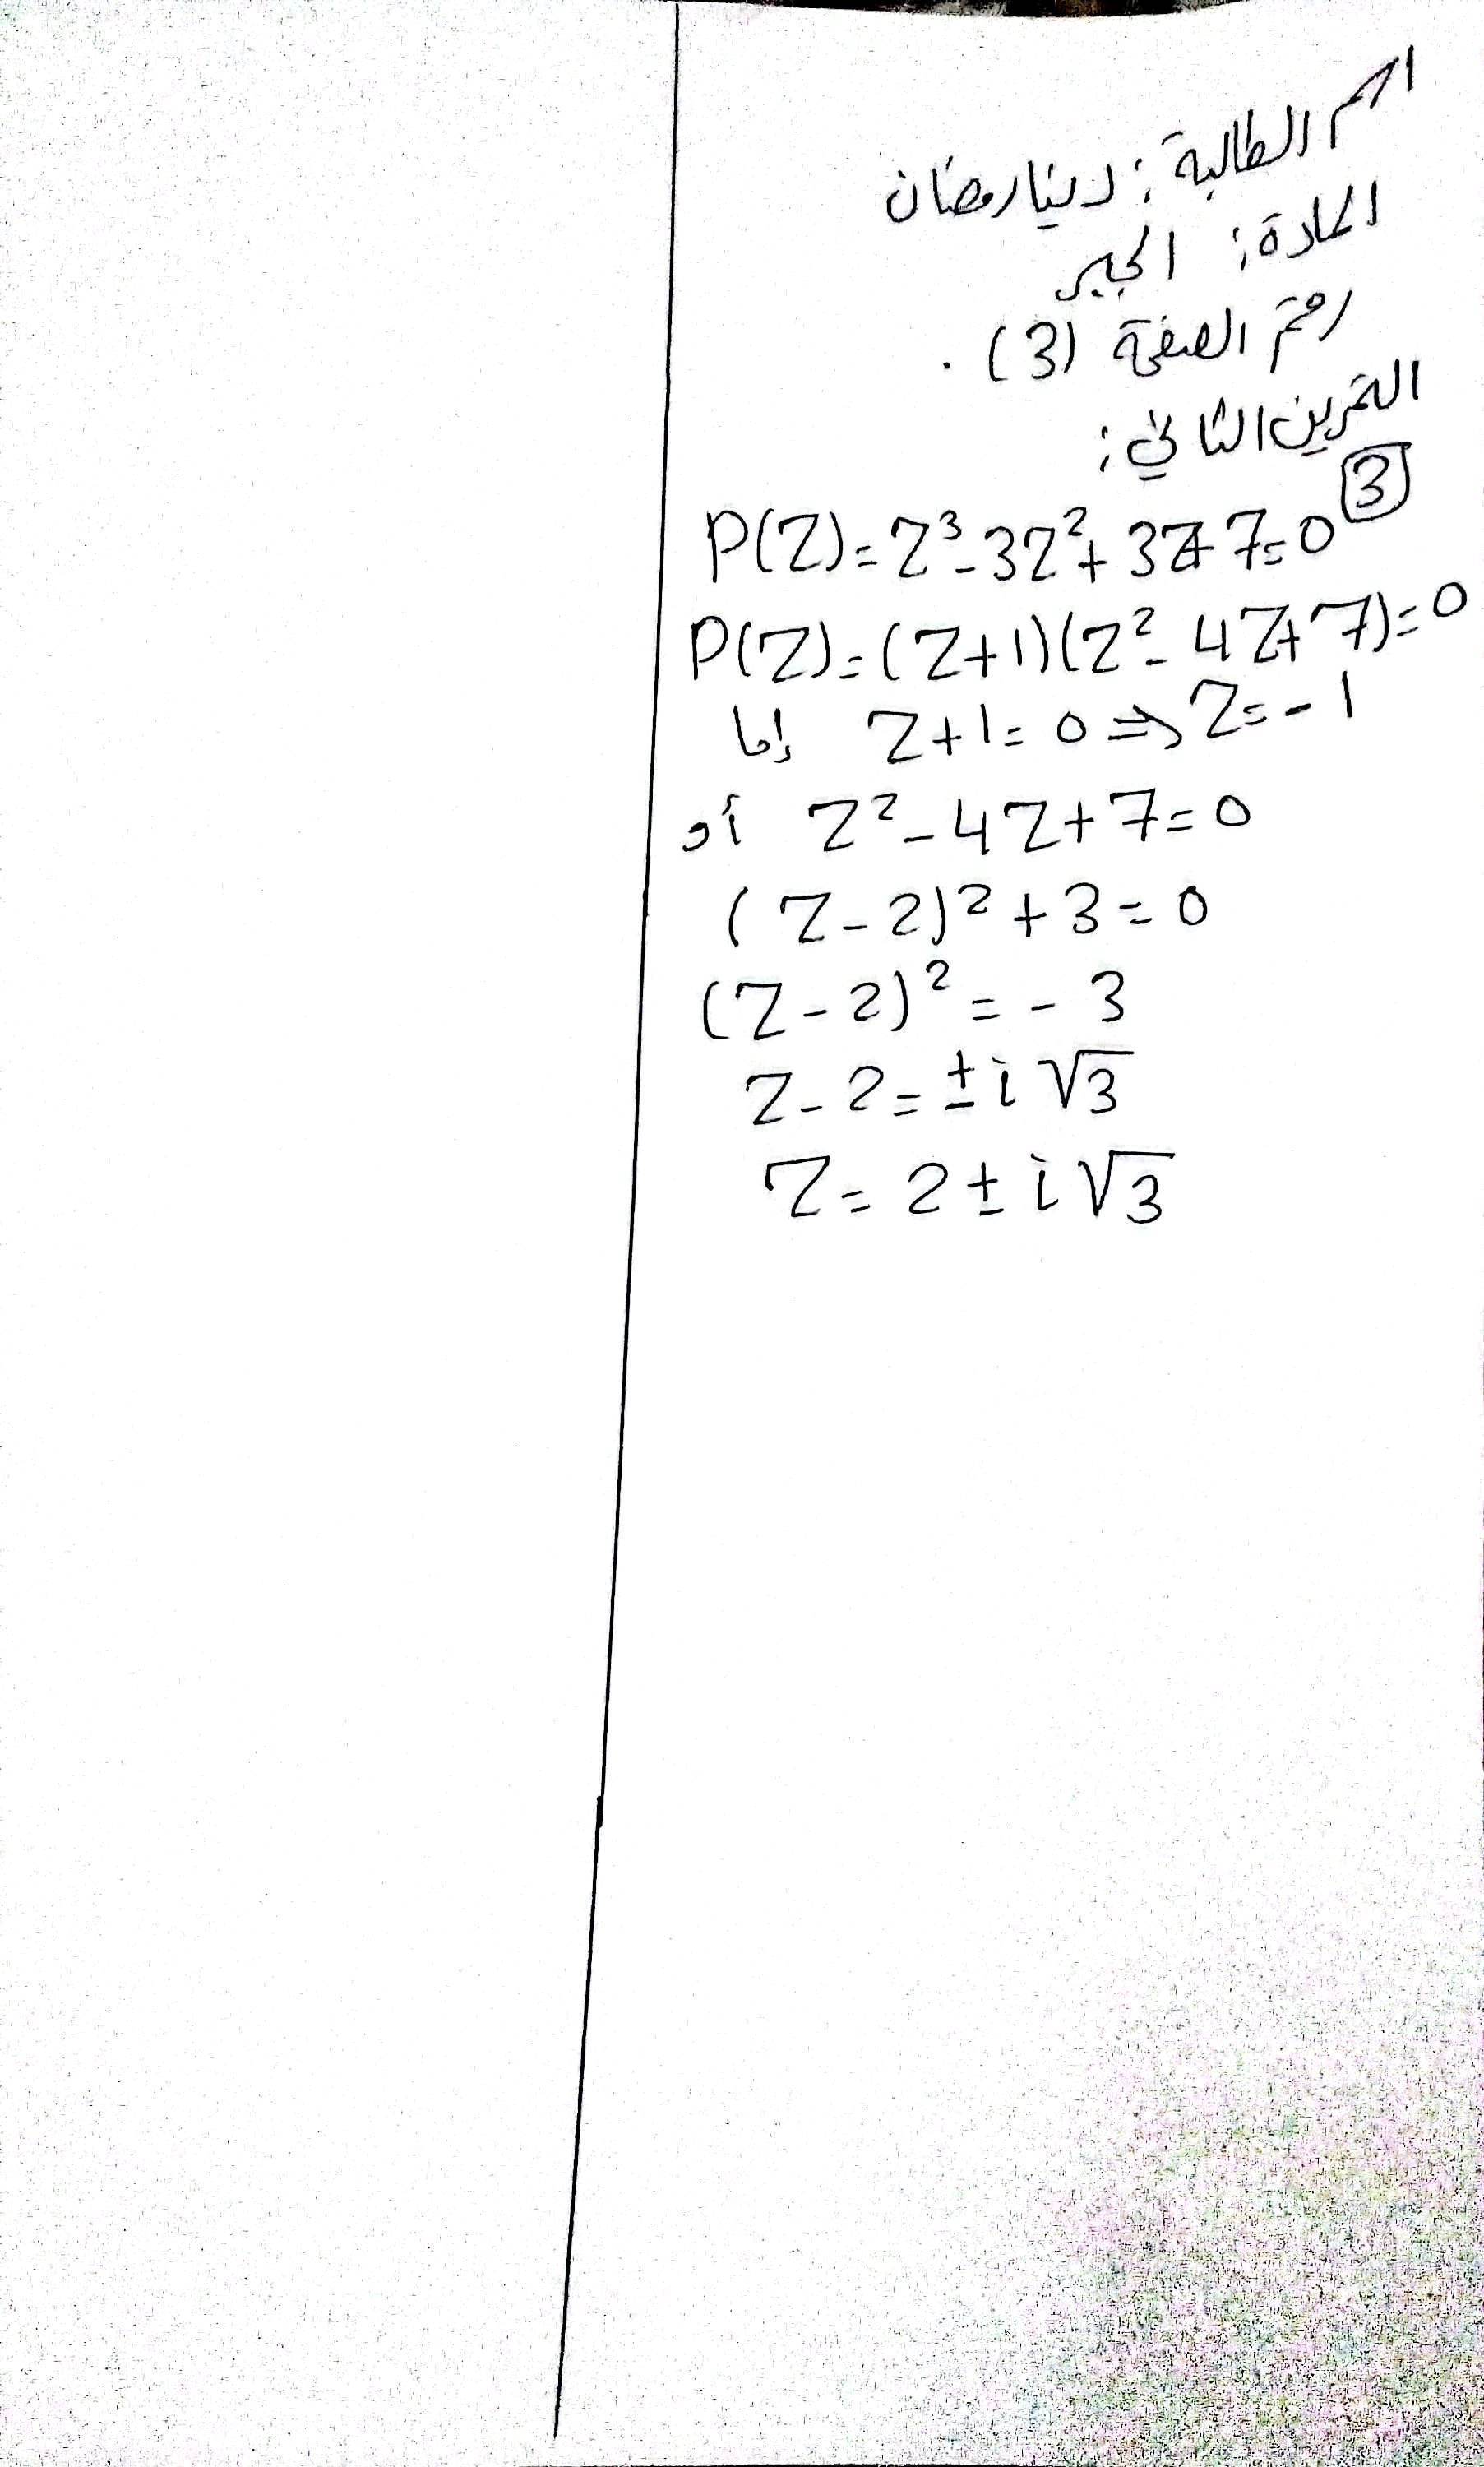 اسم الطالبة: دينا رمضان
المادة: الجبر
رقم الصفحة (3).
التمرين الثاني:
3
P(Z)=Z³-3Z²+3Z+7=0
P(Z)=(Z+1)(Z²-4Z+7)=0
إما Z+1=0⇒Z=-1
أو Z²-4Z+7=0
(Z-2)²+3=0
(Z-2)²=-3
Z-2=±i√3
Z=2±i√3